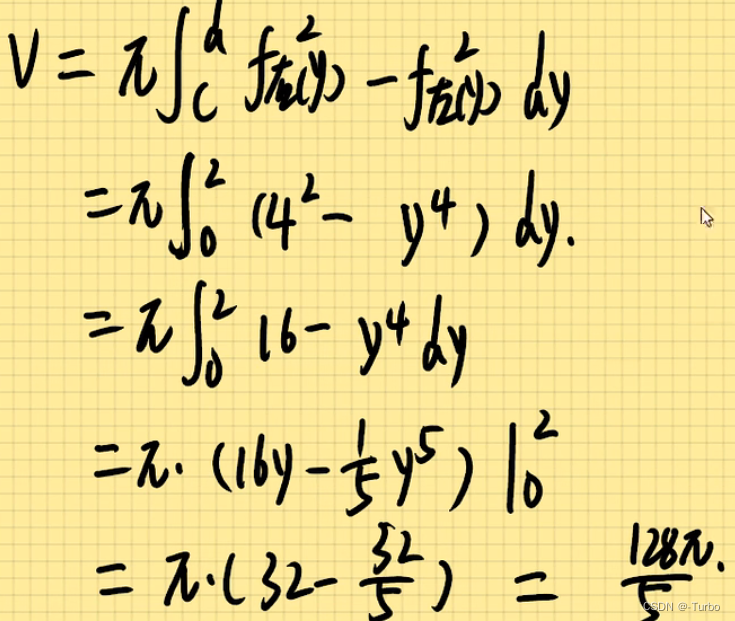 V = π∫_c^d f右²(y) - f左²(y) dy
= π∫_0^2 (4² - y⁴) dy.
= π∫_0^2 16 - y⁴ dy
= π·(16y - 1/5 y⁵)|_0^2
= π·(32 - 32/5) = 128π/5.
CSDN @-Turbo